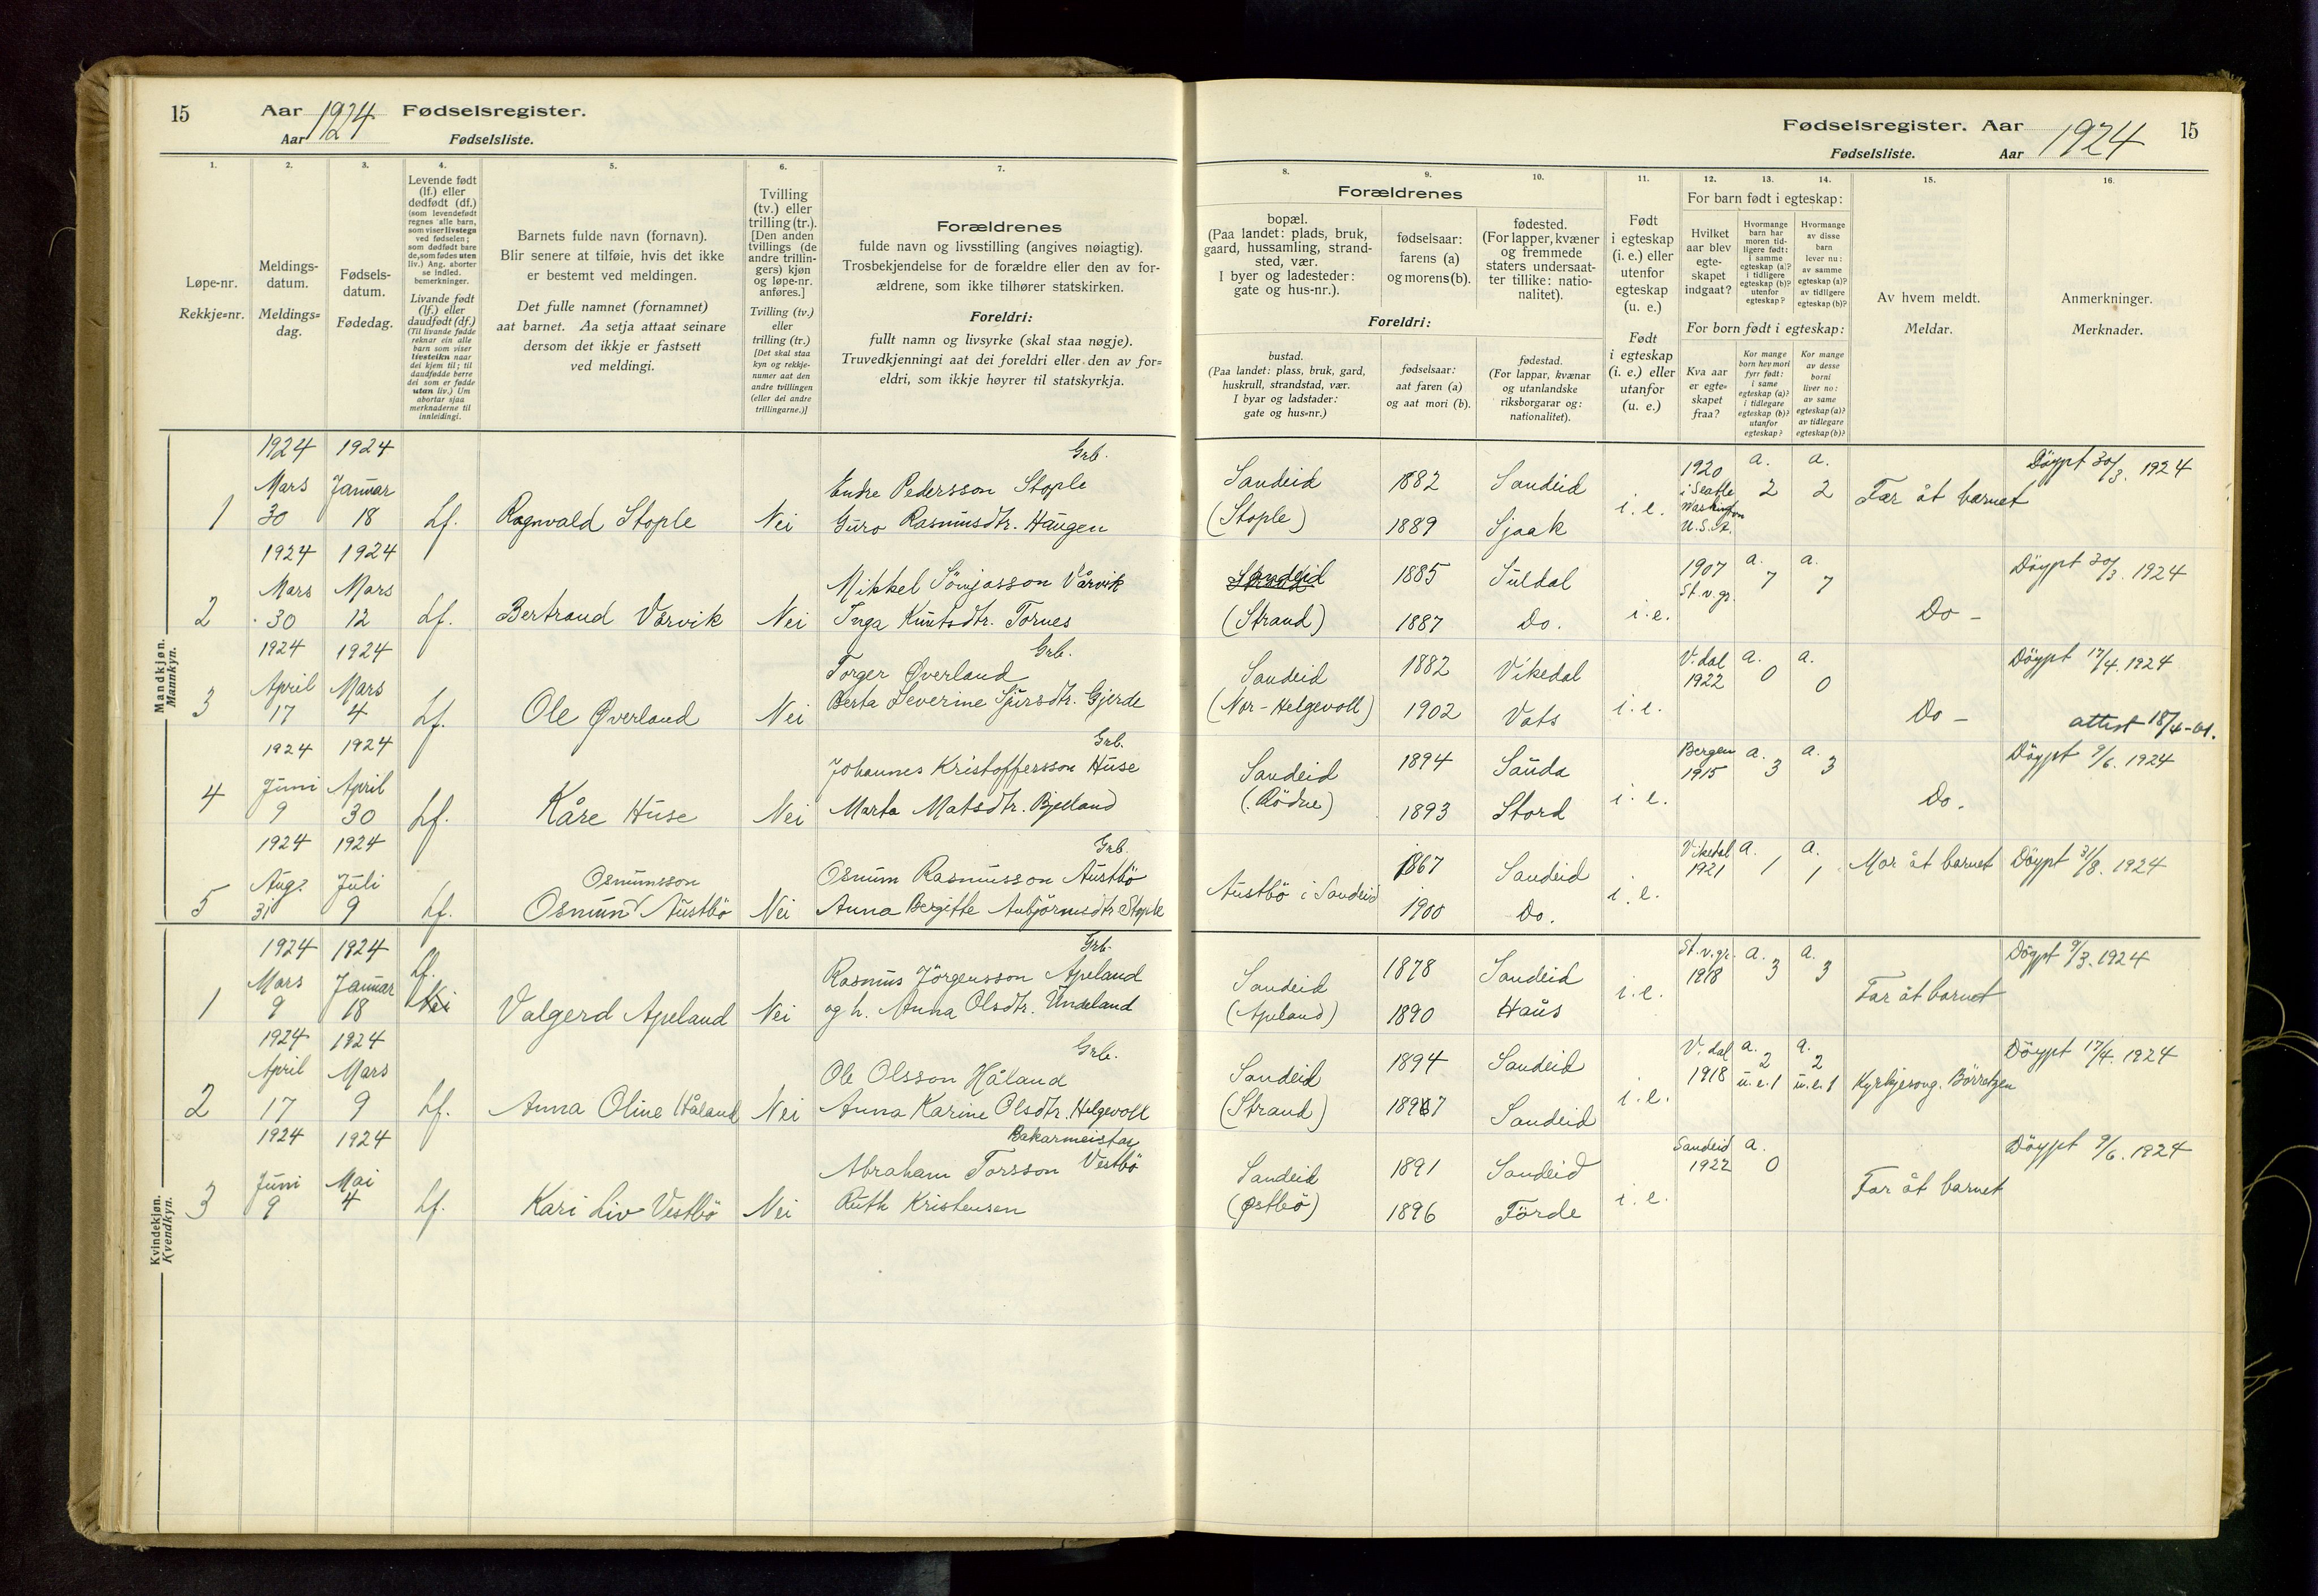 15
Aar 1924 Fødselsregister.
Aar Fødselsliste.
1.
2.
3.
4.
5.
6.
7.
Løpe-nr.
Rekkje=nr.
Meldings-
datum.
Meldings=
dag.
Fødsels-
datum.
Fødedag.
Levende født
(lf.) eller
dødfødt (df.)
(som levendefødt
regnes alle barn,
som viser livstegn
ved fødselen;
som dødfødt bare
de, som fødes uten
liv.) Ang. aborter
se indled.
bemerkninger.
Livande født
(lf.) eller
daudfødt (df.)
(Til livande fødde
reknar ein alle
barn som viser
livsteikn naar
dei kjem til; til
daudfødde berre
dei som er fødde
utan liv.) Um
abortar sjaa
merknaderne til
innleidingi.
Barnets fulde navn (fornavn).
Blir senere at tilføie, hvis det ikke
er bestemt ved meldingen.
Det fulle namnet (fornamnet)
aat barnet. Aa setja attaat seinare
dersom det ikkje er fastsett
ved meldingi.
Tvilling
(tv.) eller
trilling (tr.).
[Den anden
tvillings (de
andre trillin-
gers) kjøn
og løpe-nr.
anføres.]
Tvilling (tv.)
eller
trilling (tr.)
[Det skal staa
kyn og rekkje-
numer aat den
andre tvillingen
(eller dei andre
trillingarne.)]
Forældrenes
fulde navn og livsstilling (angives nøiagtig).
Trosbekjendelse for de forældre eller den av for-
ældrene, som ikke tilhører statskirken.
Foreldri:
fullt namn og livsyrke (skal staa nøgje).
Truvedkjenningi aat dei foreldri eller den av for=
eldri, som ikkje høyrer til statskyrkja.
Mandkjøn.
Mannkyn.
1924 1924 Grb.
Mars Januar Endre Pedersson Stople
1 30 18 Lf. Ragnvald Stople Nei Guro Rasmusdtr. Haugen
1924 1924
Mars Mars Mikkel Vårvik
2 30 12 Lf. Bertrand Vårvik Nei Inga Knutsdtr. Tornes
1924 1924 Grb.
April Mars Torger Øverland
3 17 4 Lf. Ole Øverland Nei Berta Severine Sjursdtr. Gjerde
1924 1924 Grb.
Juni April Johannes Kristoffersson Huse
4 9 30 Lf. Kåre Huse Nei Marta Matsdtr. Bjelland
1924 1924 Grb.
Aug. Juli Osmunsson Osmun Rasmusson Austbö
5 31 9 Lf. Osmun Austbö Nei Anna Bergitte Aubjörnsdtr. Stople
Kvindekjøn.
Kvendkyn.
1924 1924 Lf. Grb.
Mars Januar Nei Rasmus Jörgensson Apeland
1 9 18 Valgerd Apeland Nei og h. Anna Olsdtr. Undeland
1924 1924 Grb.
April Mars Ole Olsson Håland
2 17 9 Lf. Anna Oline Håland Nei Anna Karine Olsdtr. Helgevoll
1924 1924 Bakarmeistar
Juni Mai Abraham Torsson Vestbö
3 9 4 Lf. Kari Liv Vestbö Nei Ruth Kristensen
Fødselsregister. Aar 1924 15
Fødselsliste. Aar
8.
9.
10.
11.
12.
13.
14.
15.
16.
Forældrenes
bopæl.
(Paa landet: plads, bruk,
gaard, hussamling, strand-
sted, vær.
I byer og ladesteder:
gate og hus-nr.).
fødselsaar:
farens (a)
og morens (b).
fødested.
(For lapper, kvæner
og fremmede
staters undersaat-
ter tillike: natio-
nalitet).
Foreldri:
bustad.
(Paa landet: plass, bruk, gard,
huskrull, strandstad, vær.
I byar og ladstader:
gate og hus-nr.)
fødselsaar:
aat faren (a)
og aat mori (b).
fødestad.
(For lappar, kvænar
og utanlandske
riksborgarar og:
nationalitet).
Født
i egteskap
(i. e.) eller
utenfor
egteskap
(u. e.)
Født
i egteskap
(i. e.) eller
utanfor
(u. e.)
For barn født i egteskap:
Hvilket
aar blev
egte-
skapet
indgaat?
Hvormange
barn har
moren tid-
ligere født:
i samme
egteskap (a)?
i tidligere
egteskap (b)?
utenfor
egteskap?
Hvormange
av disse
barn
lever nu:
av samme
egteskap (a)?
av tidligere
egteskap (b)?
For born født i egteskap:
Kva aar
er egte=
skapet
fraa?
Kor mange
born hev mori
fyrr født:
i same
egteskap (a)?
i tidlegare
egteskap (b)?
utanfor
egteskap?
Kor mange
av desse
borni
liver no:
av same
egteskap (a)?
av tidlegare
egteskap (b)?
Av hvem meldt.
Meldar.
Anmerkninger.
Merknader.
Sandeid 1882 Sandeid 1920 a. a. Döypt 30/3. 1924
(Stople) 1889 Sjaak i. e. i Seatle Washington U.S.A. 2 2 Far åt barnet
Sandeid 1885 Suldal 1907 a. a. Döypt 30/3. 1924
(Strand) 1887 Do. i. e. St.v.gr. 7 7 Do -
Sandeid 1882 Vikedal V.dal a. a. Döypt 17/4. 1924
(Nor-Helgevoll) 1902 Vats i. e. 1922 0 0 Do - attest 18/4-01.
Sandeid 1894 Sauda Bergen a. a. Döypt 9/6. 1924
(Rödne) 1893 Stord i. e. 1915 3 3 Do.
Austbö i Sandeid 1867 Sandeid Vikedal a. a. Mor åt barnet Döypt 31/8. 1924
1900 Do. i. e. 1921 1 1
Sandeid 1878 Sandeid St.v.gr. a. a. Döypt 9/3. 1924
(Apeland) 1890 Haus i. e. 1918 3 3 Far åt barnet
Sandeid 1894 Sandeid V.dal a. 2 a. 2 Döypt 17/4. 1924
(Strand) 1897 Sandeid i. e. 1918 u.e. 1 u.e. 1 Kyrkjesong. Börretzen
Sandeid 1891 Sandeid Sandeid a. Döypt 9/6. 1924
(Østbö) 1896 Förde i. e. 1922 0 Far åt barnet